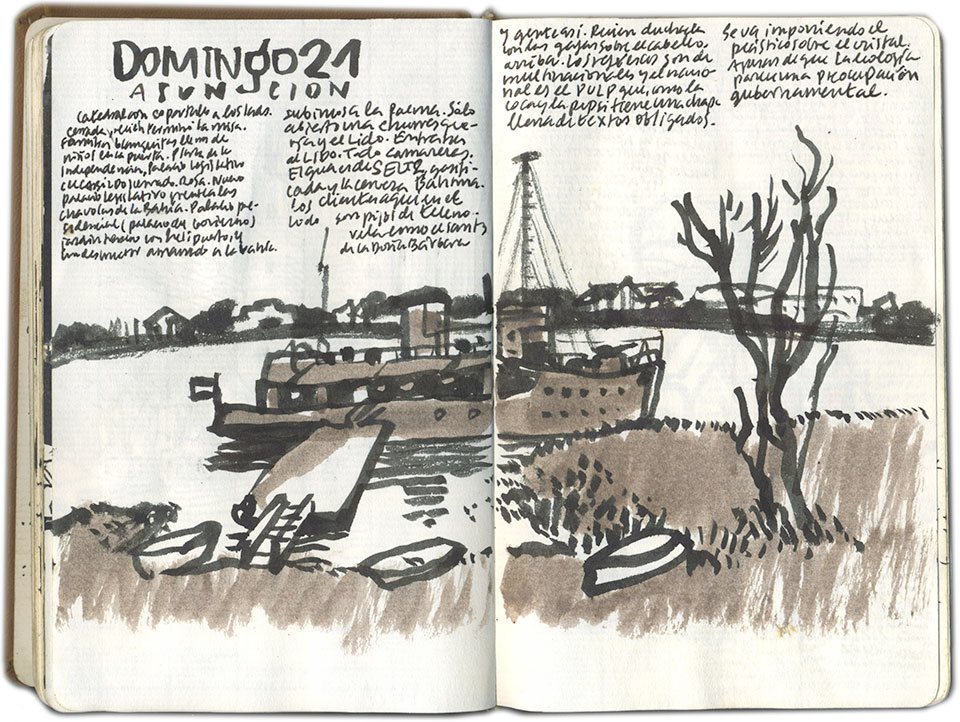 DOMINGO 21
ASUNCION
Catedral con esportales a los lados.
Cerrada, recién terminó la misa.
Familias blanquitas llenas de
niños en la puerta. Plaza de la
Independencia, Palacio legislativo
clásico cerrado. Rosa. Nuevo
palacio legislativo frente a las
chavolas de la Bahía. Palacio pre-
sidencial (palacio de Gobierno)
jardín trasero con helipuerto, y
un destructor amarrado a la bahía.
subimos a la Palma. Sólo
abierto una churresque-
ría y el Lido. Entramos
al Lido. Todo camareras.
El agua es de SELTZ, gasifi-
cada y la cerveza Bahima.
Los clientes aquí en el
Lido son pijos de teleno-
vela como el santos
de la Doña Bárbara
y gente así. Recién duchada
con las gafas sobre el cabello.
arriba. Los refrescos son de
multinacionales y el nacio-
nal es el PULP que, como la
coca y la pepsi tiene una chapa
llena de textos obligados.
Se va imponiendo el
plástico sobre el cristal.
A pesar de que la ecología
parece una preocupación
gubernamental.